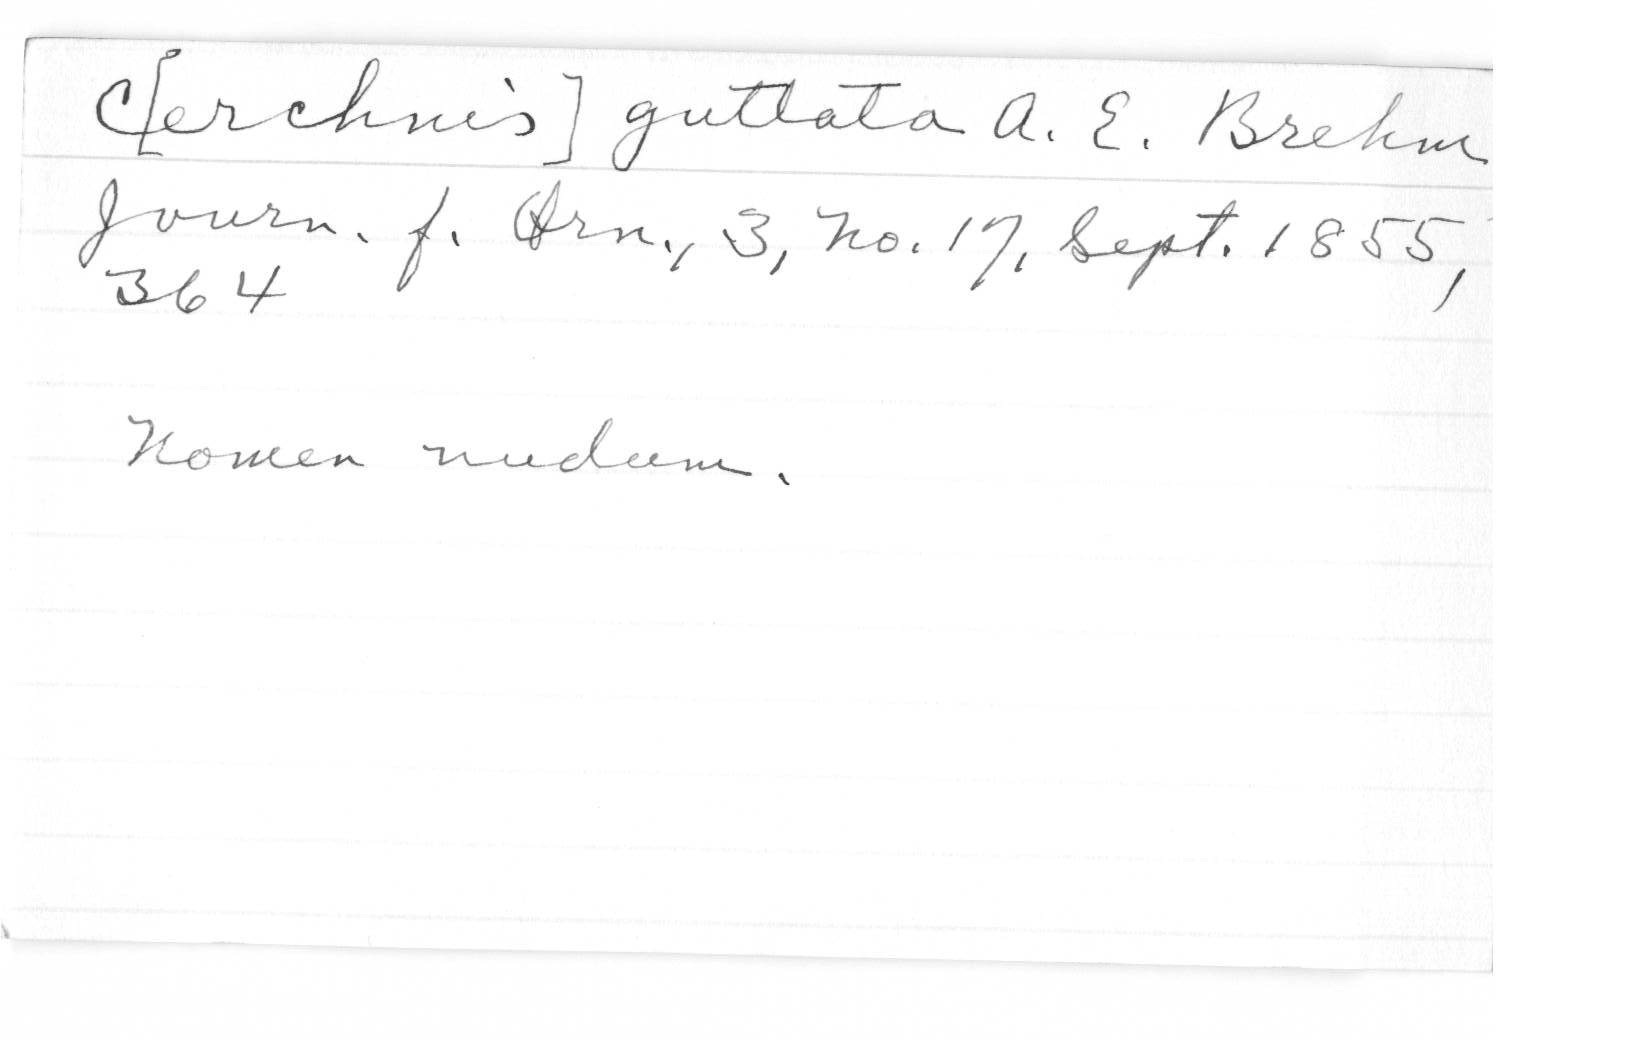 C[erchneis] guttata A. E. Brehm
Journ. f. Orn., 3, No. 17, Sept. 1855,
364
Nomen nudum.